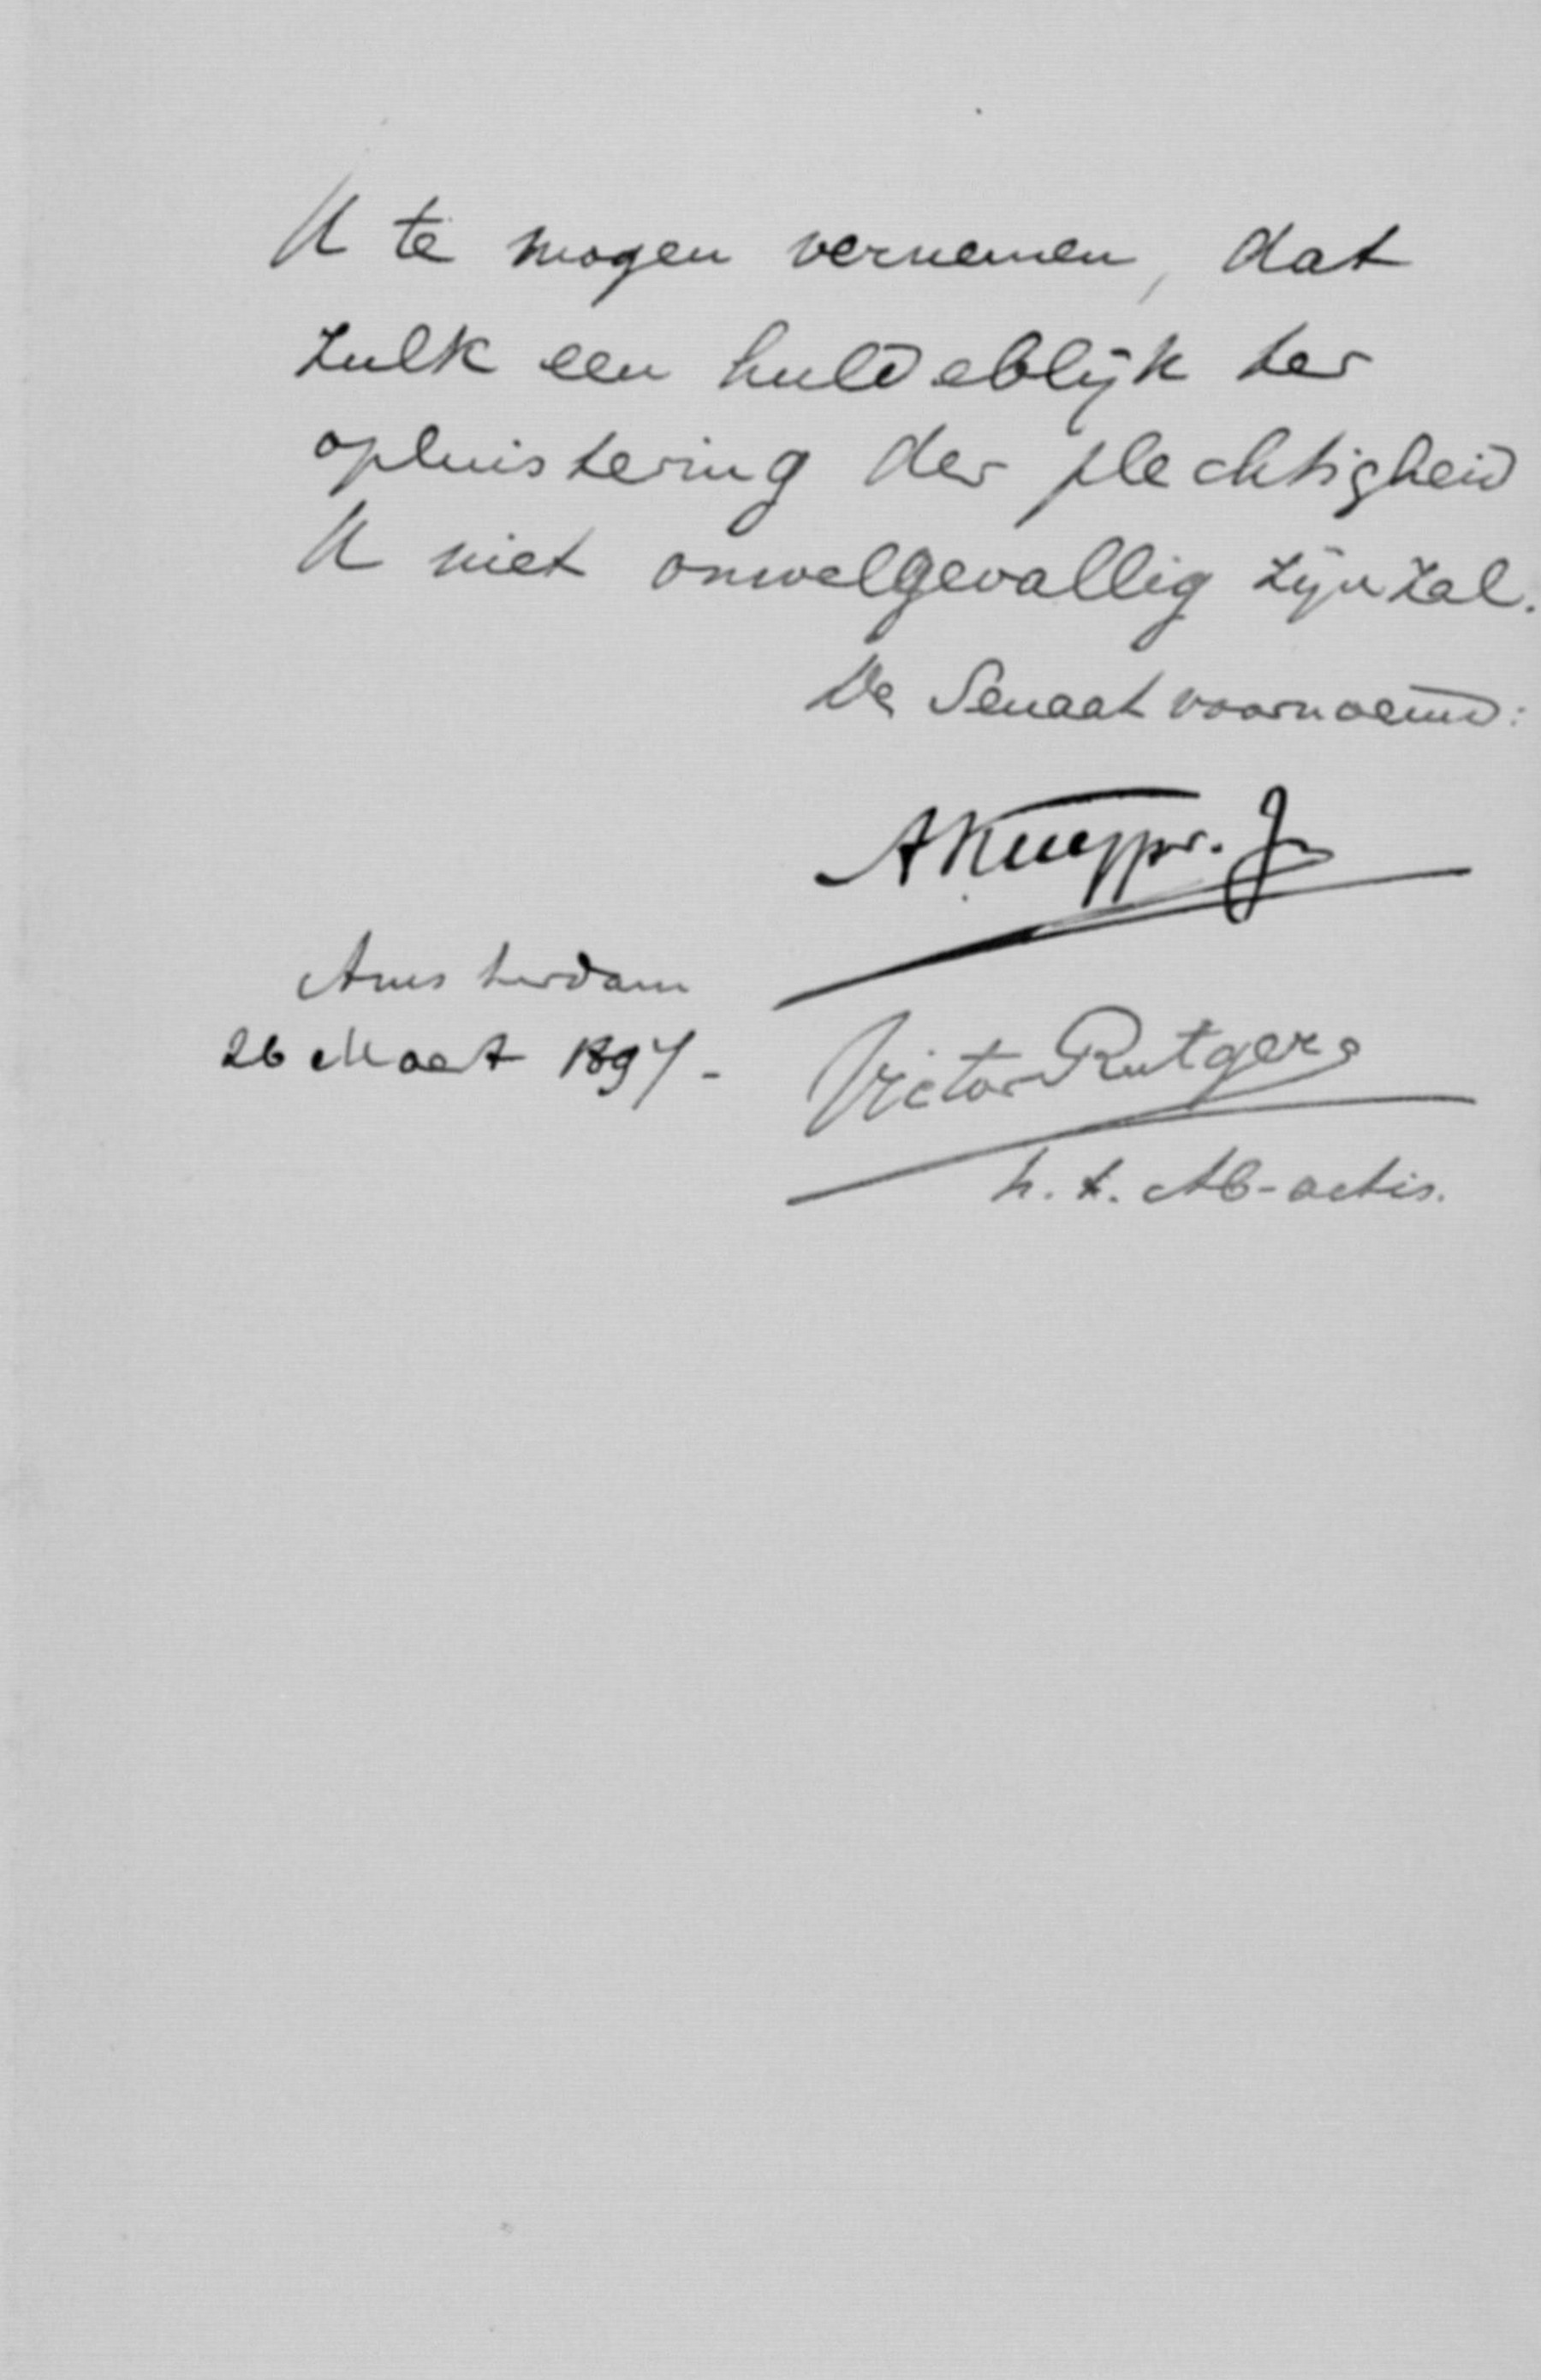 U te mogen vernemen, dat
zulk een huldeblijk ter
opluistering der plechtigheid
U niet onwelgevallig zijn zal.
De Senaat voornoemd:
AKuyper. Jr
Amsterdam
26 Maart 1897 -
Victor Rutgers
h. t. Ab-actis.